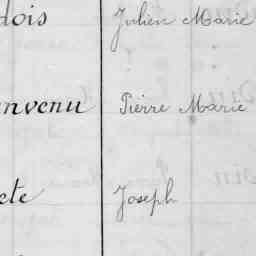 dois Julien Marie
nvenu Pierre Marie
ete Joseph